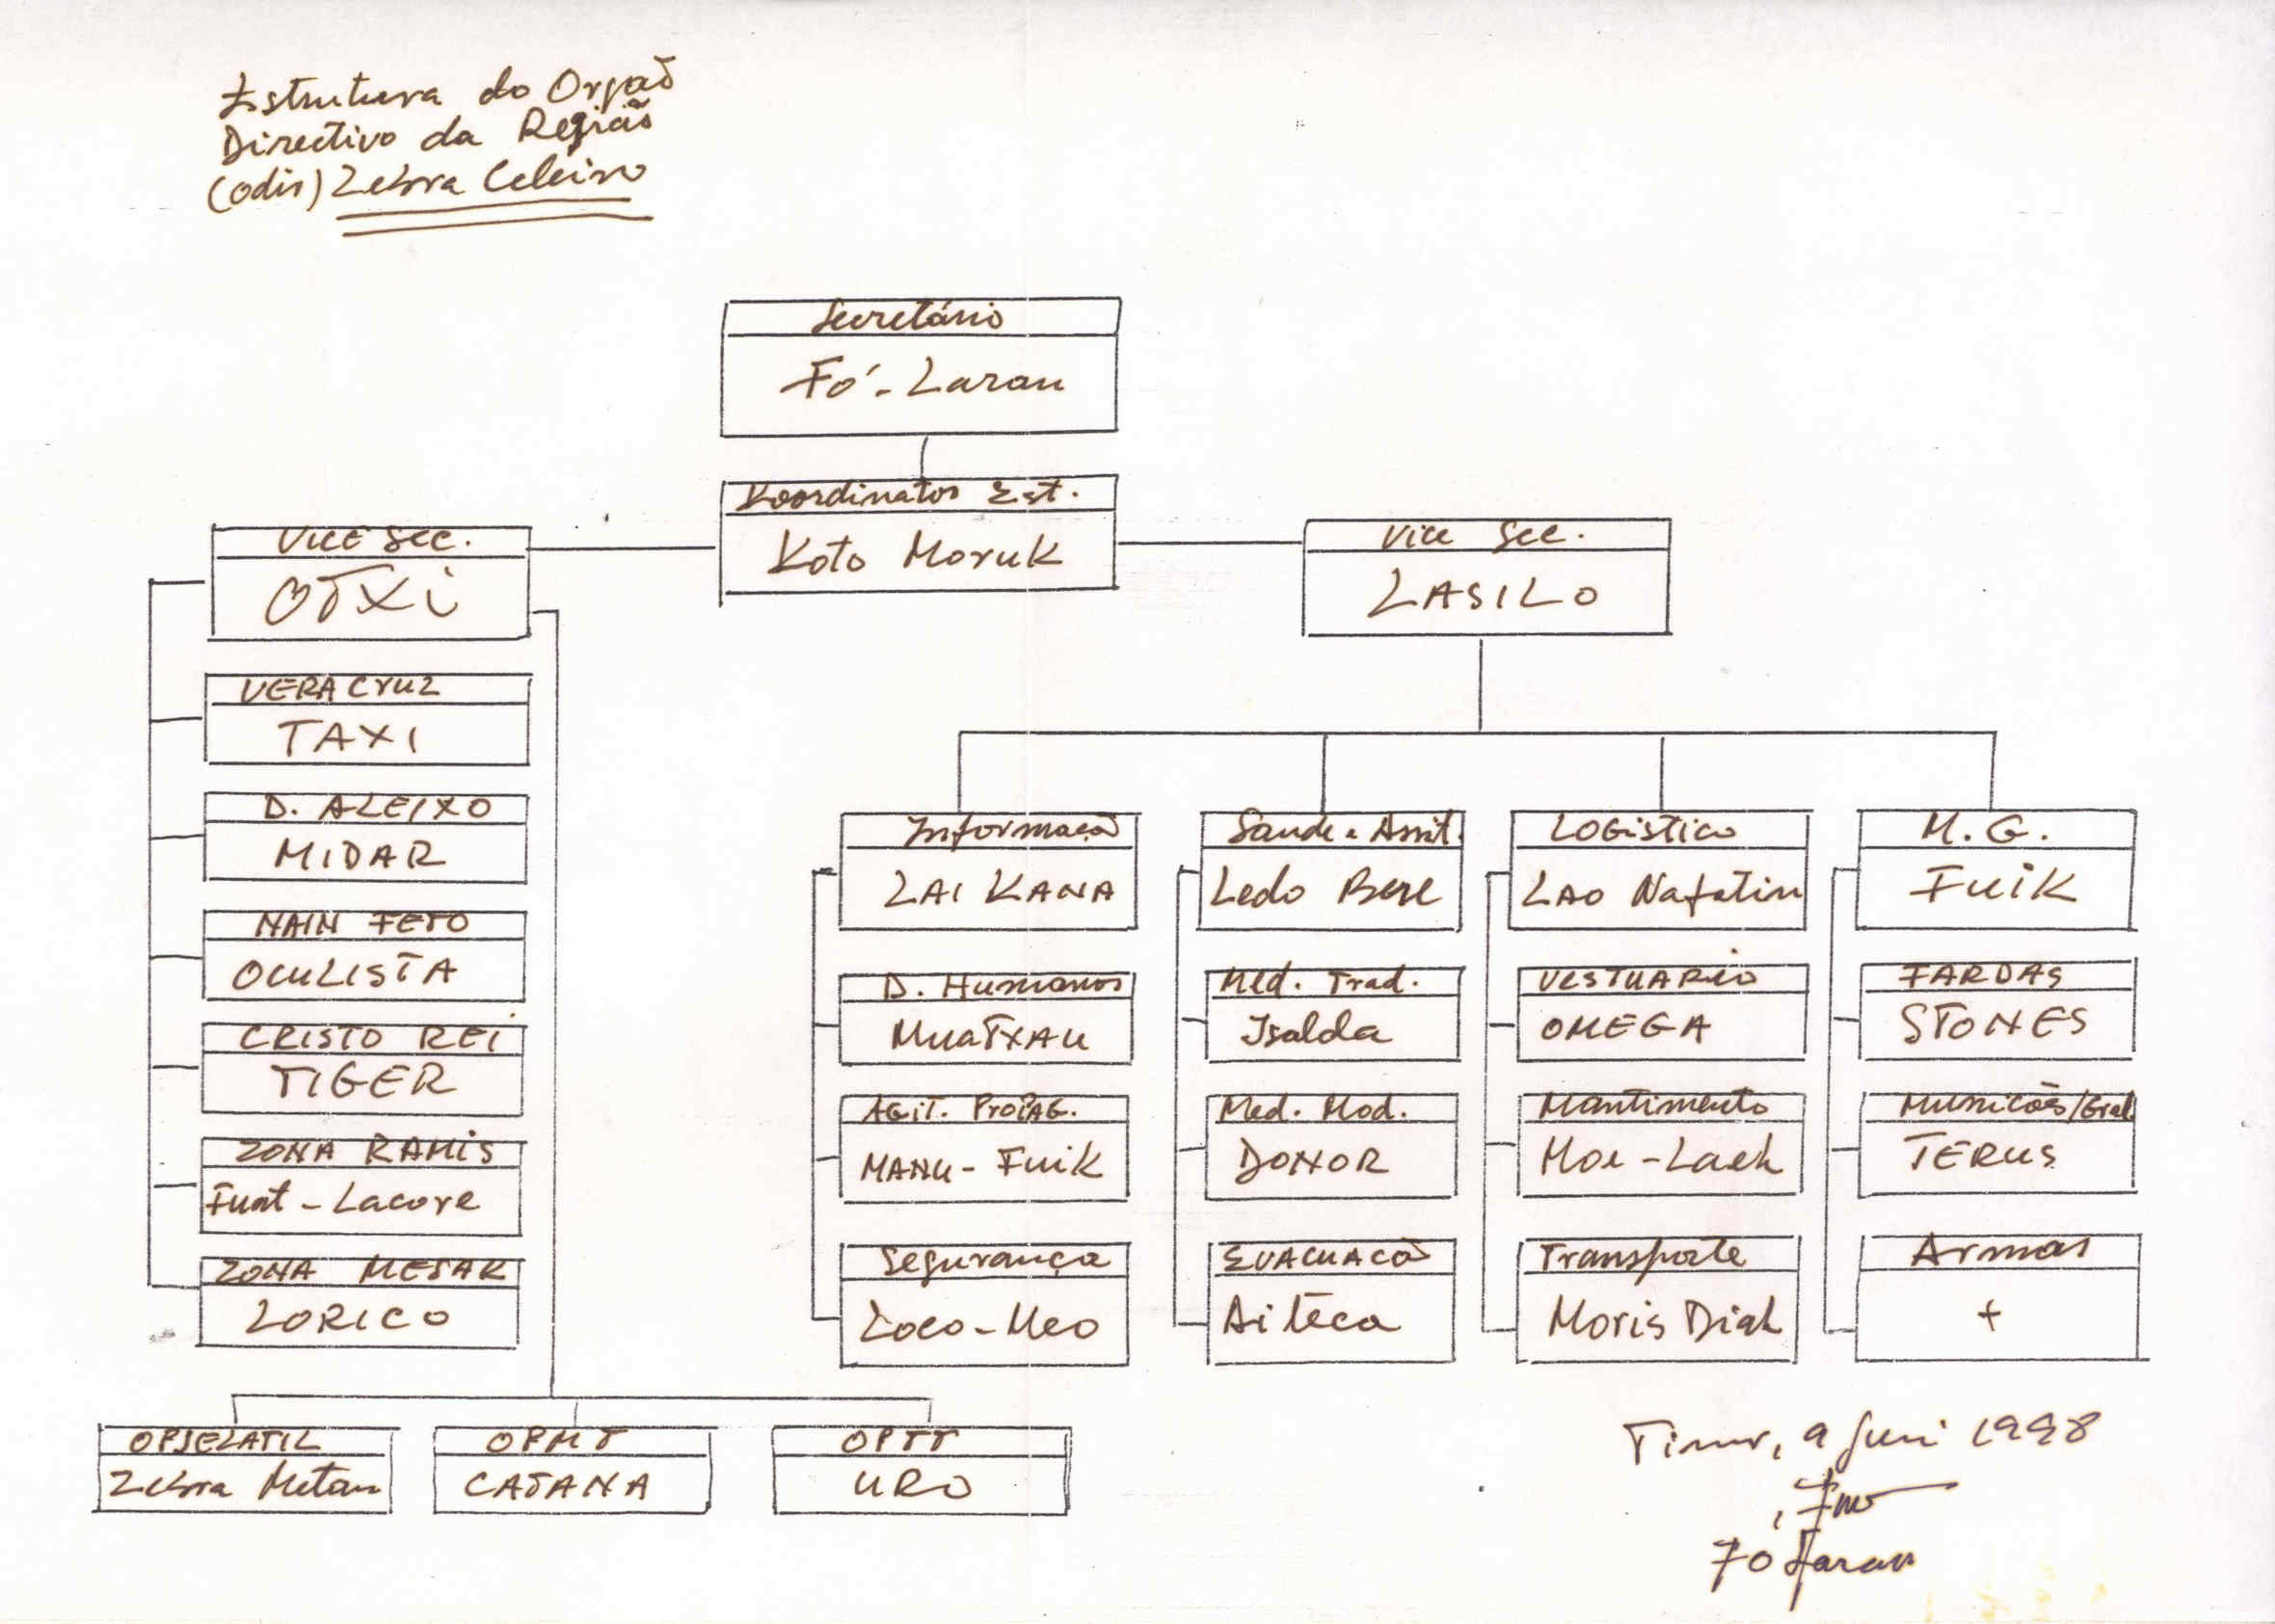 Estrutura do Orgaõ
Directivo da Região
(odir) Zebra Celeiro
Secretário
Fó-Laran
Koordinator Est.
Koto Moruk
Vice Sec.
OTXi
Vice Sec.
LASILO
VERA Cruz
TAXI
D. ALEIXO
MIDAR
NAIN FETO
OCULISTA
CRISTO REI
TIGER
ZONA RAMIS
Fuat - Lacore
ZONA MESAK
LORICO
OPJELATIL
Zebra Metan
OPMT
CATANA
OPTT
URO
Informação
LAI KANA
D. Humanos
MuaTXAu
AGiT. PROPAG.
MANU - FuiK
Segurança
Loco-Meo
Saude e Assit.
Ledo Bere
Med. Trad.
Isalda
Med. Mod.
DONOR
EVACUACÃ
Aiteca
LOGistica
LAO Nafatin
VESTUARIO
OMEGA
Mantimento
Moe-Laek
Transporte
Moris Diak
M. G.
FuiK
FARDAS
STONES
Municoẽs/Gral
TERUS
Armas
+
Timor, 9 Juni 1998
Fó Laran